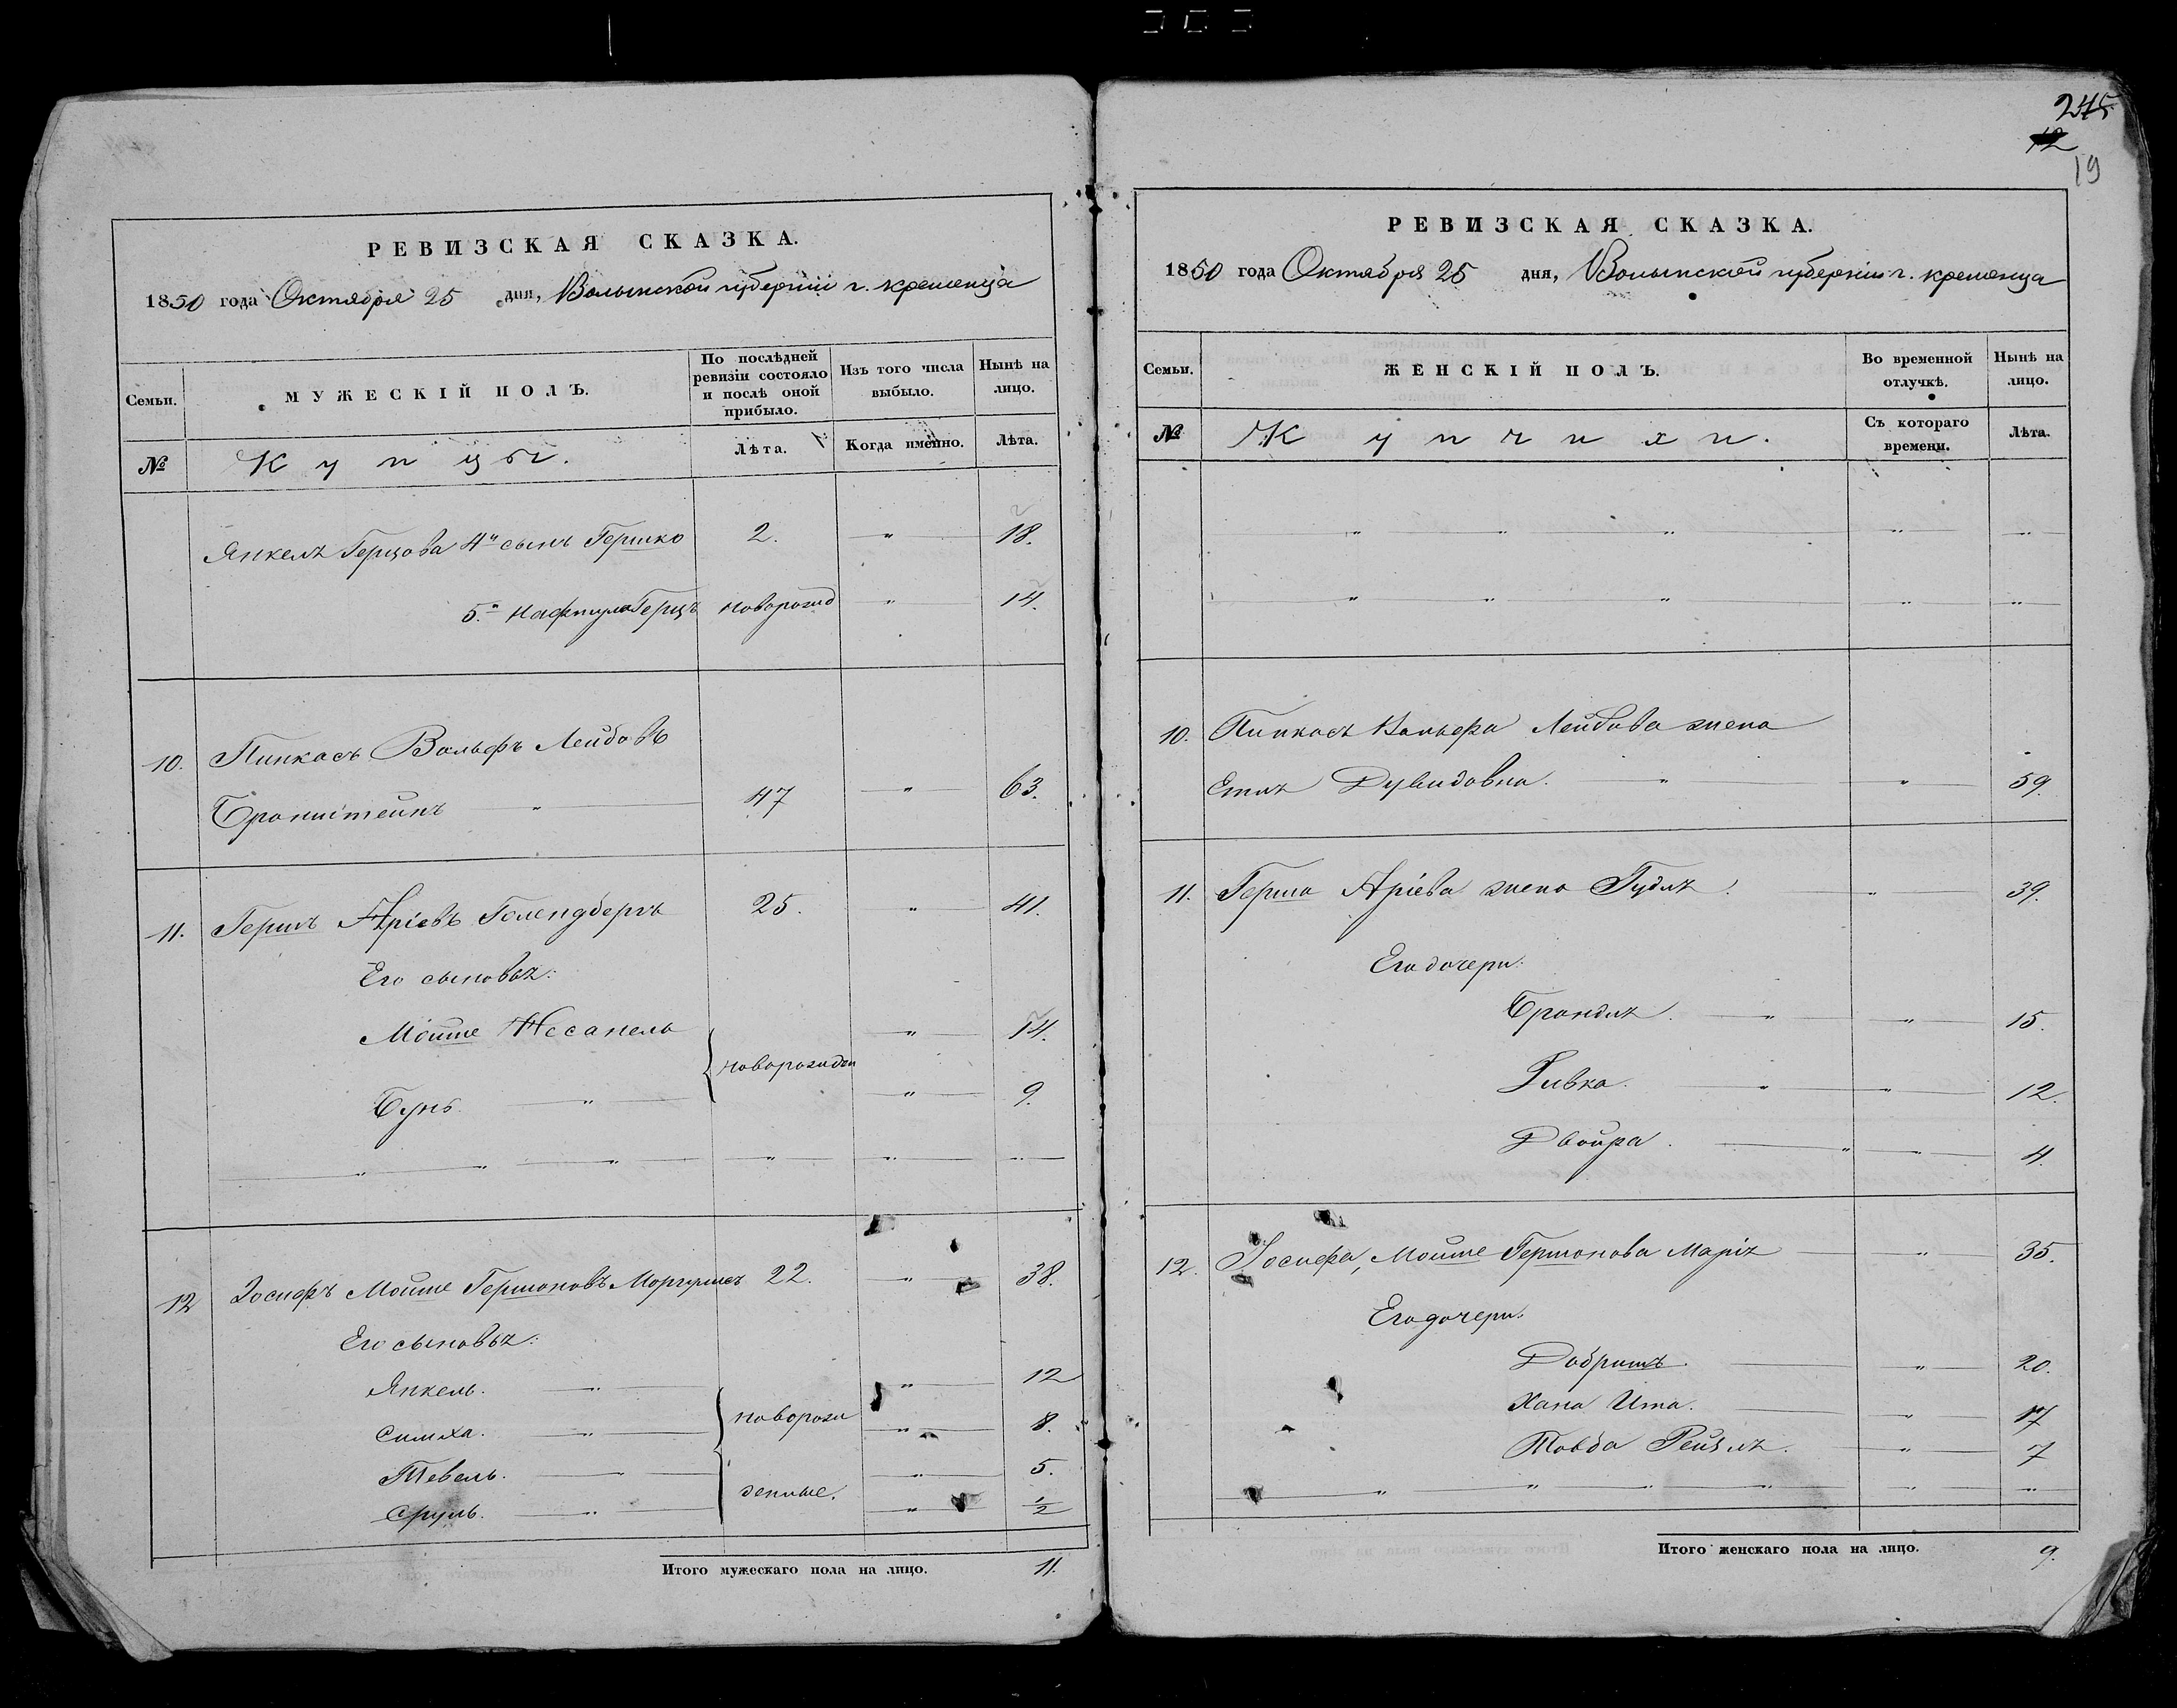 РЕВИЗСКАЯ СКАЗКА.
1850 года Октября 25 дня, Волынской губерніи г. кременца
Семьи. МУЖЕСКІЙ ПОЛЪ. По послѣдней ревизіи состояло и послѣ оной прибыло. Изъ того числа выбыло. Нынѣ на лицо.
№ Купцы. Лѣта. Когда именно. Лѣта.
Янкеля Герцова 4й сынъ Гершко 2. " 18.
5.й Нафтула Герцъ новорожд " 14.
10. Пинкасъ Вольфъ Лейбовъ
Бронштейнъ " 47 " 63.
11. Гершъ Аріевъ Голендберъ 25. " 41.
Его сыновья:
Мойше Несанель " 14.
новорожден
Бунъ " " 9.
" " " " " "
12 Іосифъ Мойше Гершоновъ Моргулисъ 22. " 38.
Его сыновья:
Янкель. " " 12
Симха. " новорож " 8.
Тевель. " " 5.
Сруль. " денные. " 1/2
Итого мужескаго пола на лицо. 11.
245
12
19
РЕВИЗСКАЯ СКАЗКА.
1850 года Октября 25 дня, Волынской губерніи г. кременца
Семьи. ЖЕНСКІЙ ПОЛЪ. Во временной отлучкѣ. Нынѣ на лицо.
№ Купчихи. Съ котораго времени. Лѣта.
" " " " "
" " " " "
10. Пинкаса Вольфа Лейбова жена
Етля Дувидовна. " " 59.
11. Герша Аріева жена Гудля. " 39.
Его дочери:
Брандля. " " 15.
Ривка. " " 12.
Двойра. " " 4.
12. Іосифа Мойше Гершонова Марія " 35.
Его дочери:
Добришъ. " 20.
Хана Ита. " 17
Товба Рейзля. " 7
" " " " " "
Итого женскаго пола на лицо. 9.